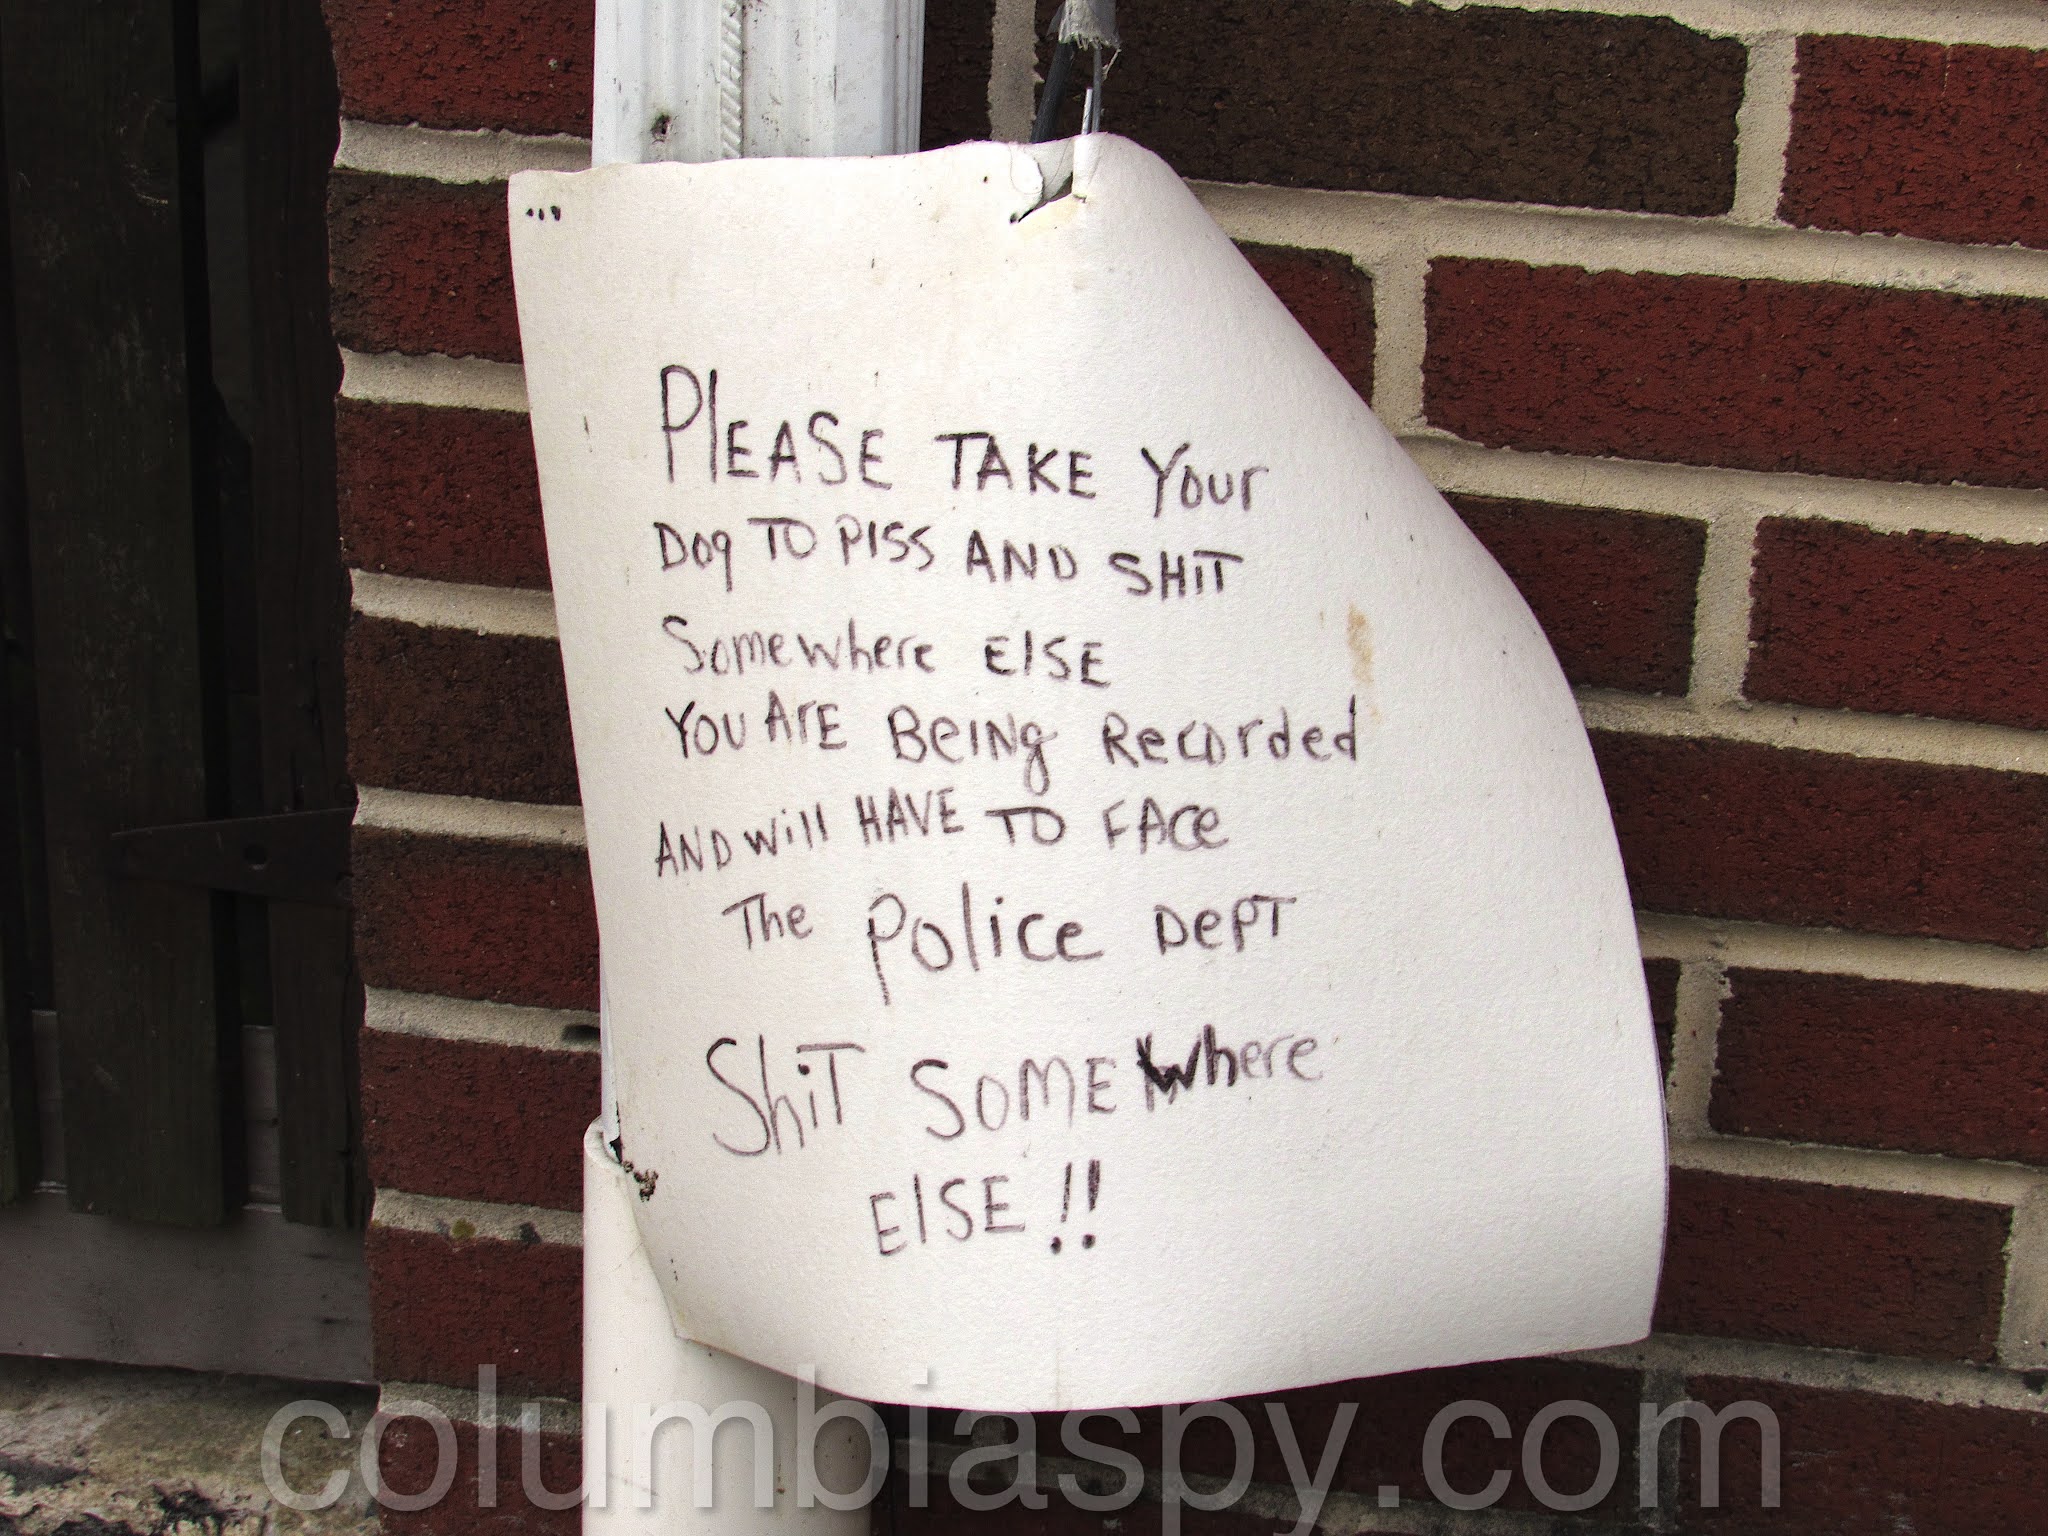 PlEASE TAKE Your
Dog TO PISS AND SHiT
Somewhere ElSE
YOU ArE BeiNg Recorded
AND will HAVE TO FAce
The Police DepT
ShiT SOMEwhere
ElSE !!
columbiaspy.com